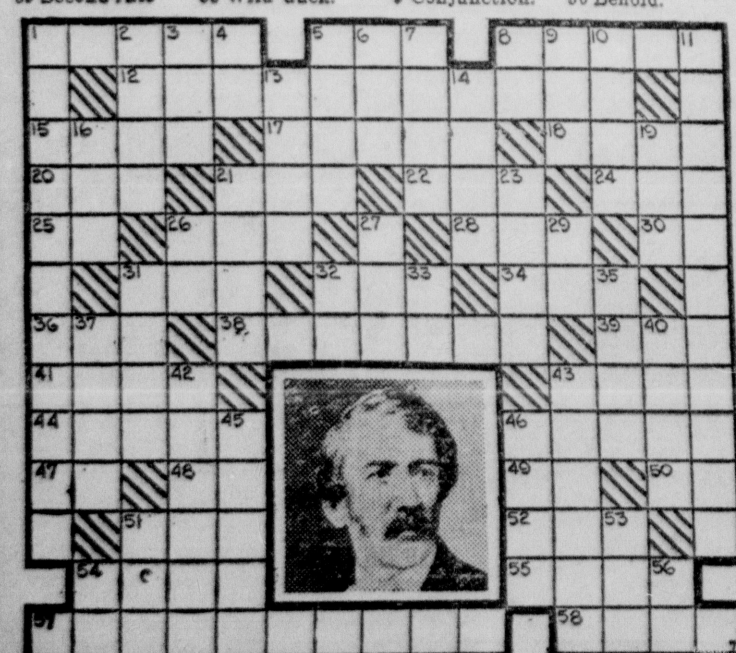 Conjunction. Behold.
1 2 3 4 5 6 7 8 9 10 11
12 13 14
15 16 17 18 19
20 21 22 23 24
25 26 27 28 29 30
31 32 33 34 35
36 37 38 39 40
41 42 43
44 45 46
47 48 49 50
51 52 53
54 55 56
57 58